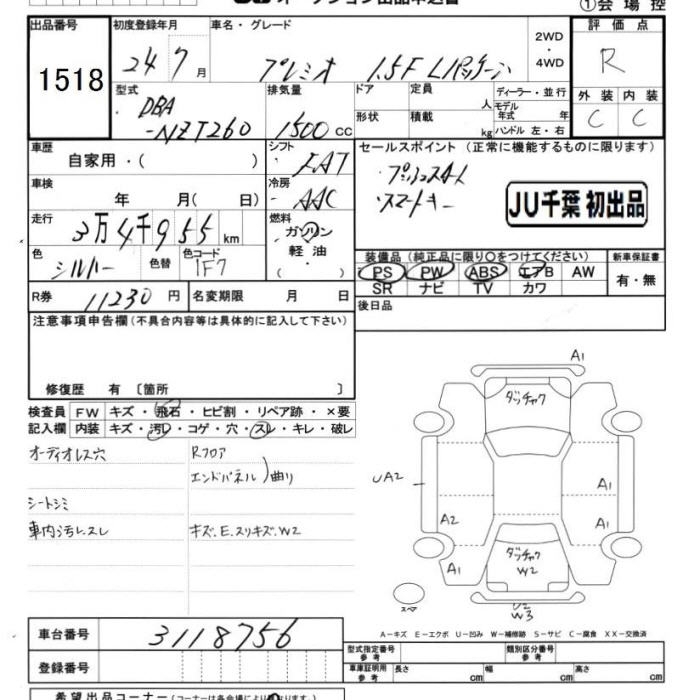 ①会場控
出品番号
1518
初度登録年月
24 7月
車名・グレード
プレミオ 1.5F Lパッケージ
2WD
・
4WD
評価点
R
外装 内装
C C
型式
DBA
-NZT260
排気量
1500cc
ドア
形状
定員
人
積載
kg
ディーラー・並行
モデル
年式 年
ハンドル 左・右
車歴
自家用・( )
シフト
FAT
セールスポイント (正常に機能するものに限ります)
・プッシュスタート
・スマートキー
JU千葉 初出品
車検
年 月( 日)
冷房
AAC
走行
3万4千955km
燃料
ガソリン
軽油・
( )
色
シルバー
色替
色コード
1F7
装備品(純正品に限り○をつけてください)
PS PW ABS エアB AW
SR ナビ TV カワ
新車保証書
有・無
R券
11230円
名変期限 月 日
後日品
注意事項申告欄(不具合内容等は具体的に記入して下さい)
修復歴 有〔箇所 〕
検査員 FW キズ・飛石・ヒビ割・リペア跡・×要
記入欄 内装 キズ・汚レ・コゲ・穴・スレ・キレ・破レ
オーディオレス穴
Rフロア
エンドパネル)曲り
シートシミ
車内汚レスレ
キズ.E.スリキズ.W2
A1
ダッチャク
UA2
A1
A2
A1
ダッチャク
W2
A1
A1
スペア
U2
W3
A-キズ E-エクボ U-凹み W-補修跡 S-サビ C-腐食 XX-交換済
車台番号
3118756
登録番号
型式指定番号
参考
類別区分番号
参考
車庫証明用
参考
長さ cm 幅 cm 高さ cm
希望出品コーナー